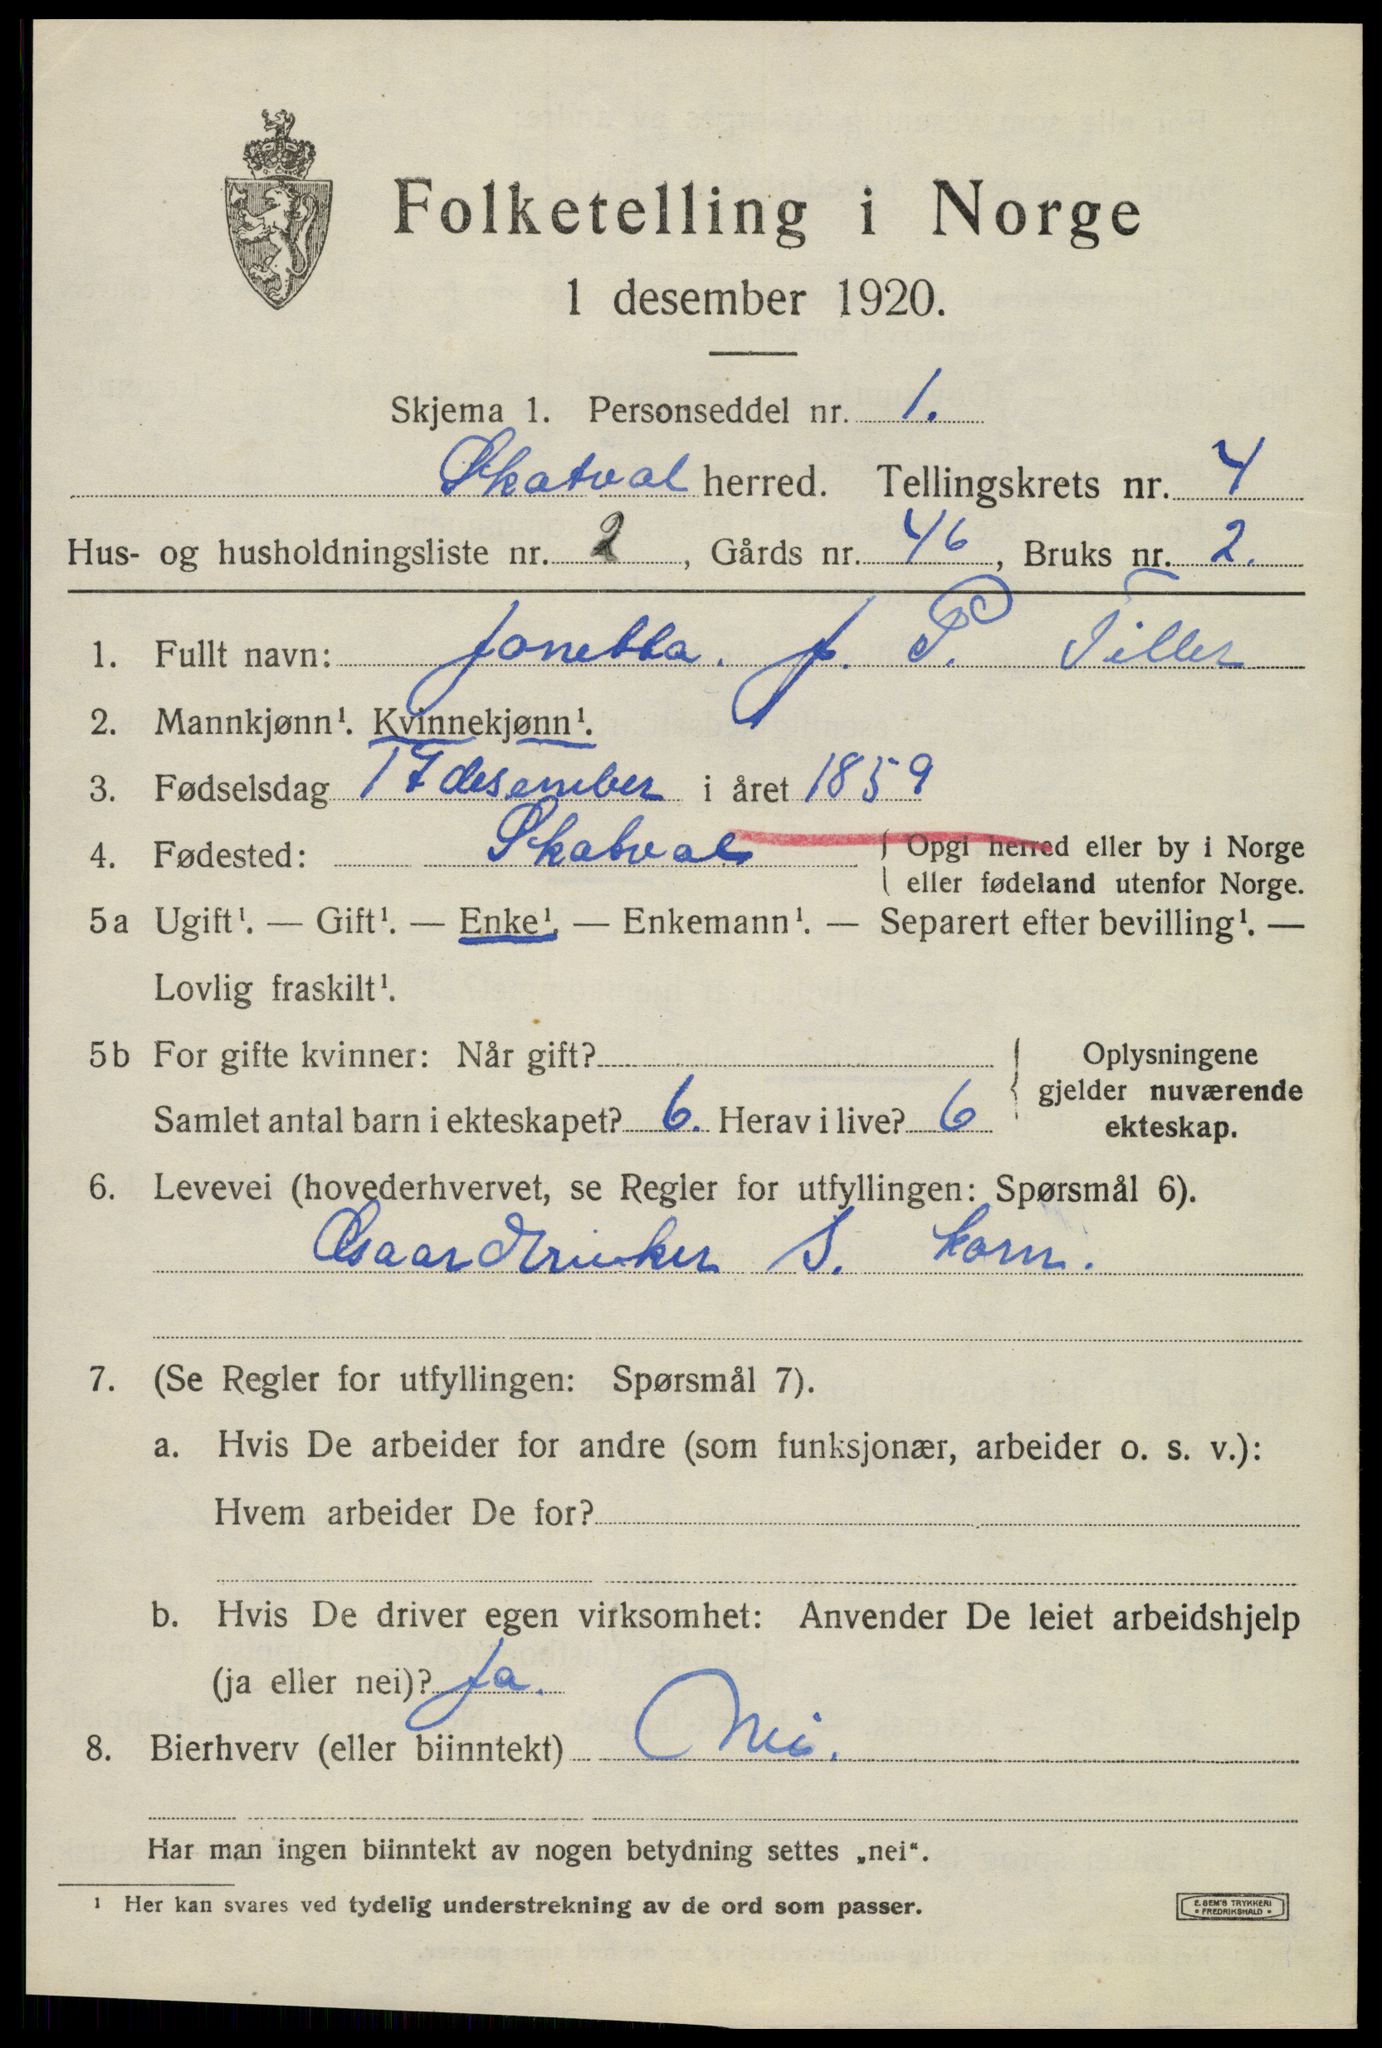 Folketelling i Norge
1 desember 1920.
Skjema 1. Personseddel nr. 1.
Skatval herred. Tellingskrets nr. 4
Hus- og husholdningsliste nr. 2, Gårds nr. 46, Bruks nr. 2.
1. Fullt navn: Jonetta. J. P. Tiller
2. Mannkjønn¹. Kvinnekjønn¹.
3. Fødselsdag 17 desember i året 1859
4. Fødested: Skatval { Opgi herred eller by i Norge
eller fødeland utenfor Norge.
5a Ugift¹. — Gift¹. — Enke¹. — Enkemann¹. — Separert efter bevilling¹. —
Lovlig fraskilt¹.
5b For gifte kvinner: Når gift? { Oplysningene
gjelder nuværende
Samlet antal barn i ekteskapet? 6. Herav i live? 6 ekteskap.
6. Levevei (hovederhvervet, se Regler for utfyllingen: Spørsmål 6).
S. korn.
7. (Se Regler for utfyllingen: Spørsmål 7).
a. Hvis De arbeider for andre (som funksjonær, arbeider o. s. v.):
Hvem arbeider De for?
b. Hvis De driver egen virksomhet: Anvender De leiet arbeidshjelp
(ja eller nei)? Ja.
8. Bierhverv (eller biinntekt) Nei.
Har man ingen biinntekt av nogen betydning settes „nei“.
¹ Her kan svares ved tydelig understrekning av de ord som passer.
E. SEM'S TRYKKERI
FREDRIKSHALD